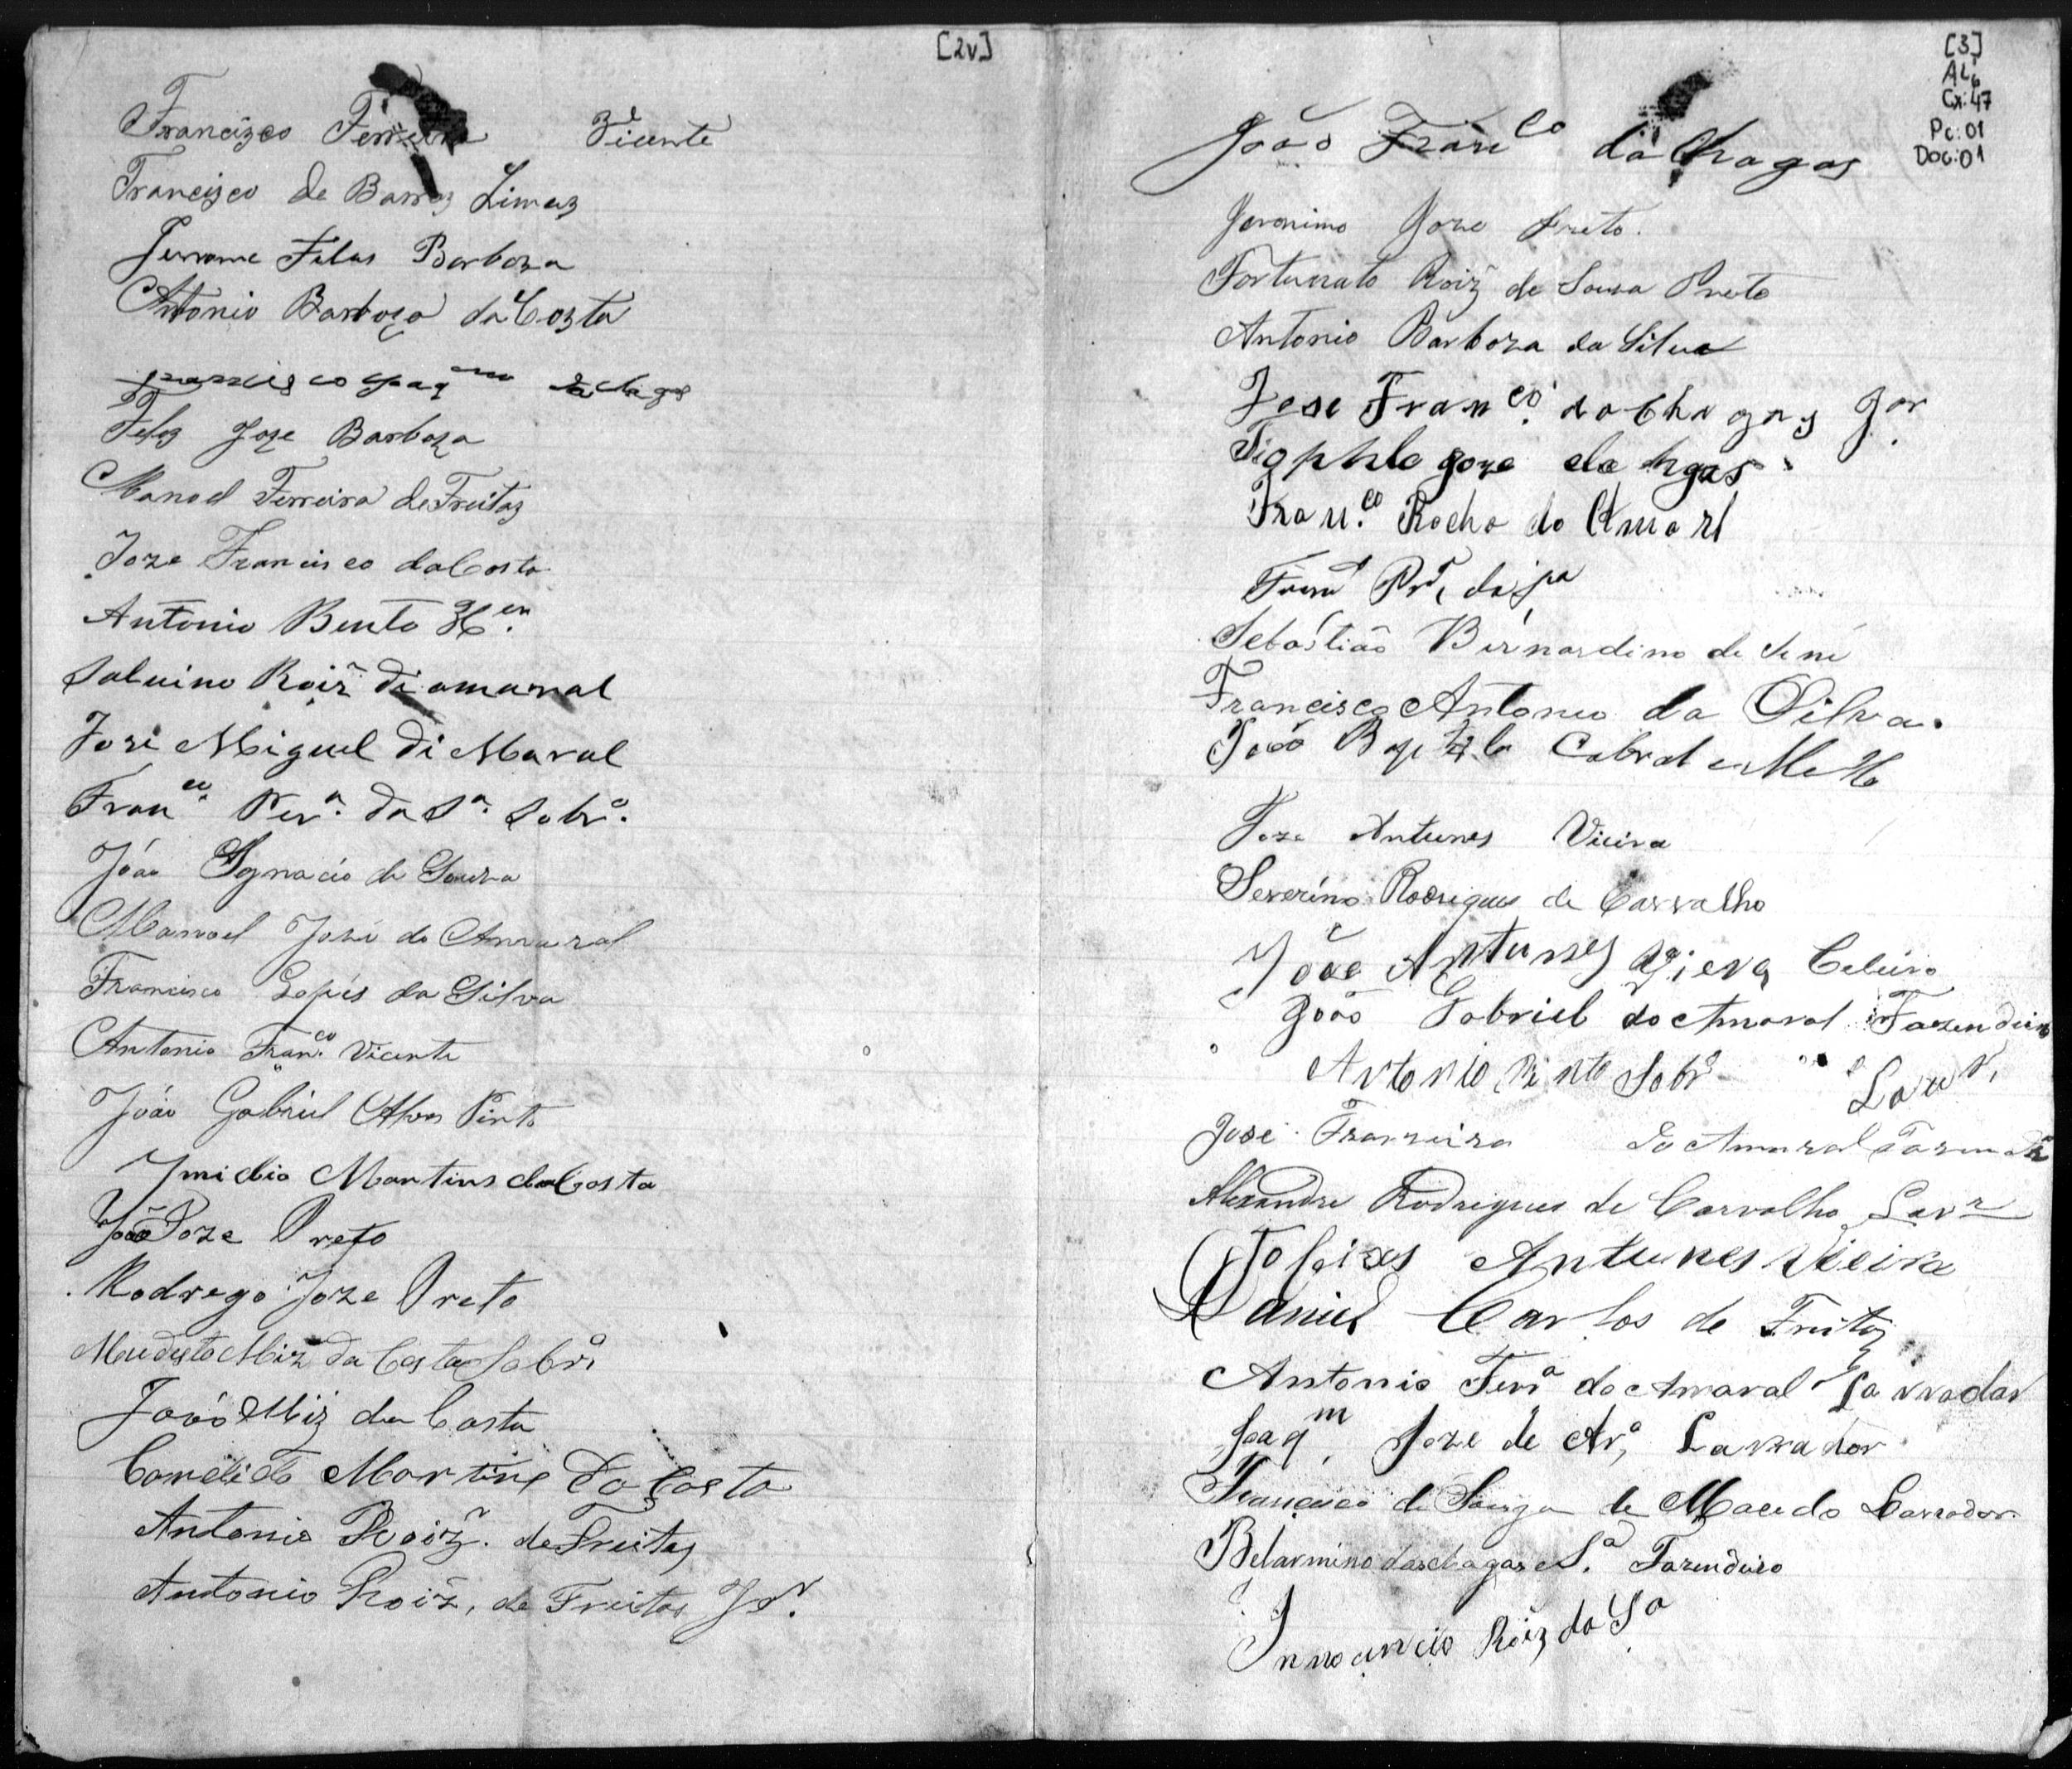 [2v]
Francisco Ferreira Vicente
Francisco de Barros Limas
Felas Barboza
Antonio Barboza da Costa
Felez Joze Barboza
Manoel Ferreira de Freitas
Joze Francisco da Costa
Antonio Bento
Saluino Roiz di amaral
Jose Miguel di Maral
Fran.co Per.a da S.a Sobr.o
João Ignacio de Souza
Manoel José do Amaral
Francisco Lopes da Silva
Antonio Fran.co Vicente
João Gabriel Alves Pinto
Imidio Martins da Costa
João Joze Preto
Rodrego Joze Preto
Moudesto Miz da Costa Sobr.o
João Miz da Costa
Candido Martins da Costa
Antonio Roiz. de Freitas
Antonio Roiz, de Freitas Jr.
[3]
AL6
Cx:47
Pc:01
Doc:01
João Franco da Chagas
Jeronimo Joze Preto.
Fortunato Roiz de Sousa Preto
Antonio Barboza da Silva
Jose Fran.co da Chagas Jor
joze
Fran.co Rocha do Amarl
Sebastião Bernardino de Sene
Francisco Antonio da Silva.
João Cabral de Mello
Joze Antunes Vieira
Severino Rodrigues de Carvalho
João Antunes Vieva Celeiro
João Gabriel do Amaral Fazendeiro
Antonio Pinto Sobr.o Lavr.
José Ferreira do Amaral
Alexandre Rodrigues de Carvalho Lavr
Antunes Vieira
Daniel Carlos de Freitas
Antonio Ferr.a do Amaral Lavrador
Joaq.m Joze de Ar.o Lavrador
Francisco de Souza de Macedo Lavrador
Belarmino das Chagas e S.a Fazendeiro
Innocencio Roiz da S.a